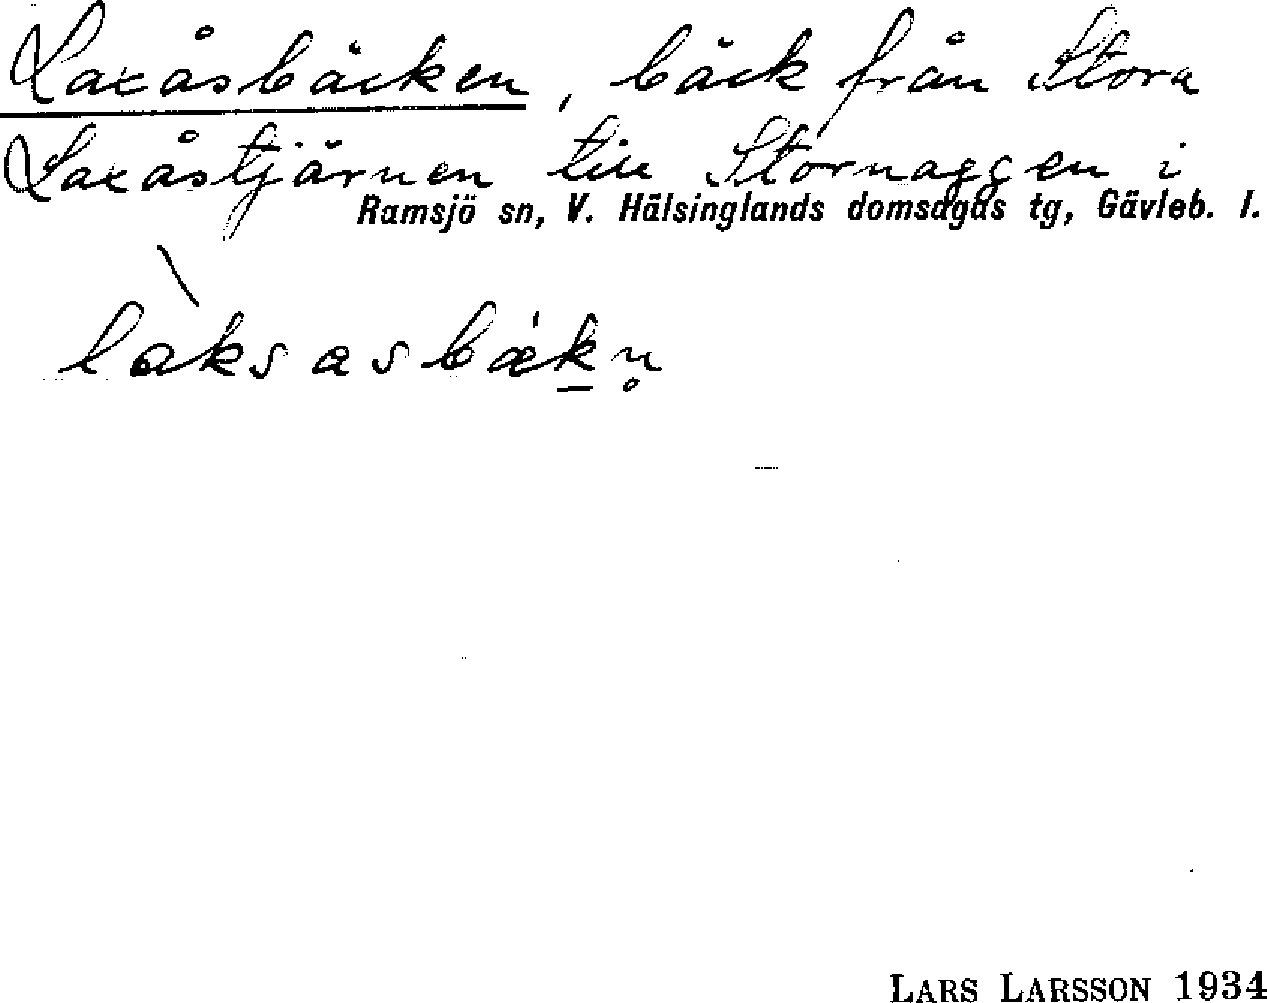 Laxåsbäcken, bäck från Stora
Laxåstjärnen till Stornaggen i
Ramsjö sn, V. Hälsinglands domsagas tg, Gävleb. l.
làksasbæ̀kn̥
LARS LARSSON 1934